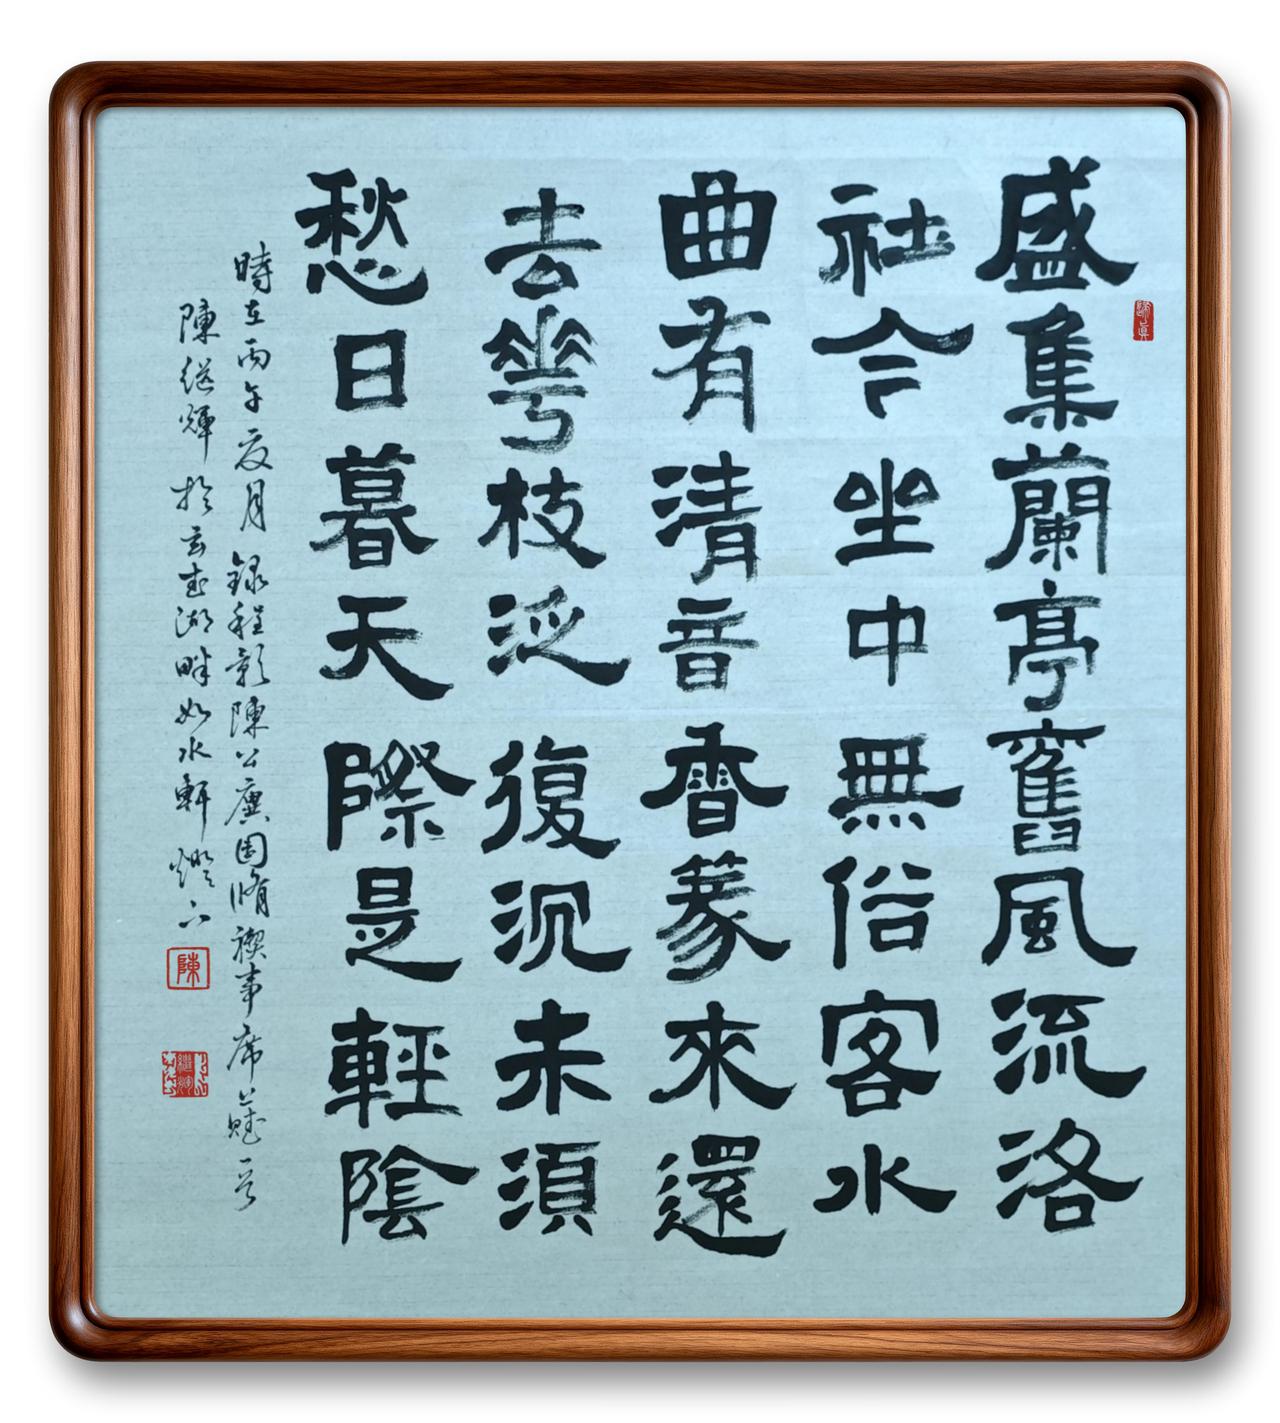 盛集蘭亭舊風流洛
社今坐中無俗客水
曲有清音香篆來還
去花枝泛復沉未須
愁日暮天際是輕陰
時在丙午夏月錄程彰陳公廙園脩禊事席上賦一首
陳繼輝於玄武湖畔如水軒燈下
陳